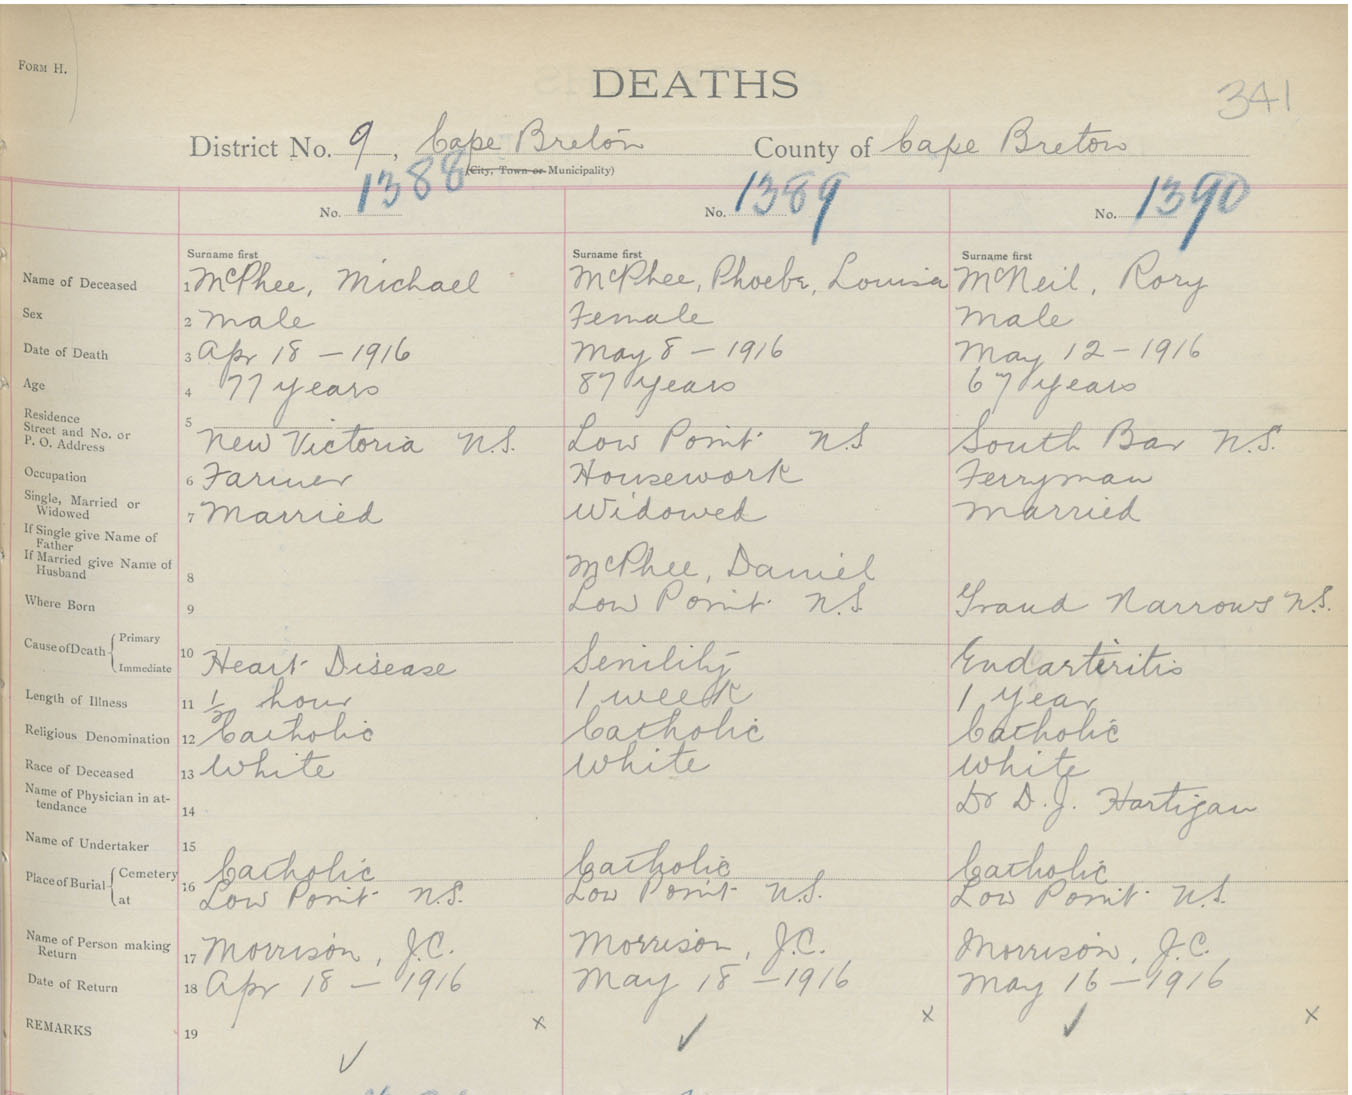 FORM H.
DEATHS
341
District No. 9, Cape Breton County of Cape Breton
(City, Town or Municipality)
No. 1388 No. 1389 No. 1390
Surname first Surname first Surname first
Name of Deceased 1 McPhee, Michael McPhee, Phoebe, Louisa McNeil, Rory
Sex 2 male Female male
Date of Death 3 Apr 18 - 1916 May 8 - 1916 May 12 - 1916
Age 4 77 years 87 years 67 years
Residence
Street and No. or
P. O. Address 5 New Victoria N.S. Low Point N.S South Bar N.S.
Occupation 6 Farmer Housework Ferryman
Single, Married or
Widowed 7 Married Widowed married
If Single give Name of
Father
If Married give Name of
Husband 8 McPhee, Daniel
Where Born 9 Low Point N.S. Grand Narrows N.S.
Cause of Death { Primary
Immediate 10 Heart Disease Senility Endarteritis
Length of Illness 11 1/2 hour 1 week 1 year
Religious Denomination 12 Catholic Catholic Catholic
Race of Deceased 13 White White White
Name of Physician in at-
tendance 14 Dr D. J. Hartigan
Name of Undertaker 15
Place of Burial { Cemetery 16 Catholic Catholic Catholic
at Low Point N.S. Low Point N.S. Low Point N.S.
Name of Person making
Return 17 Morrison, J.C. Morrison, J.C. Morrison, J.C.
Date of Return 18 Apr 18 - 1916 May 18 - 1916 May 16 - 1916
REMARKS 19 x x x
✓ ✓ ✓